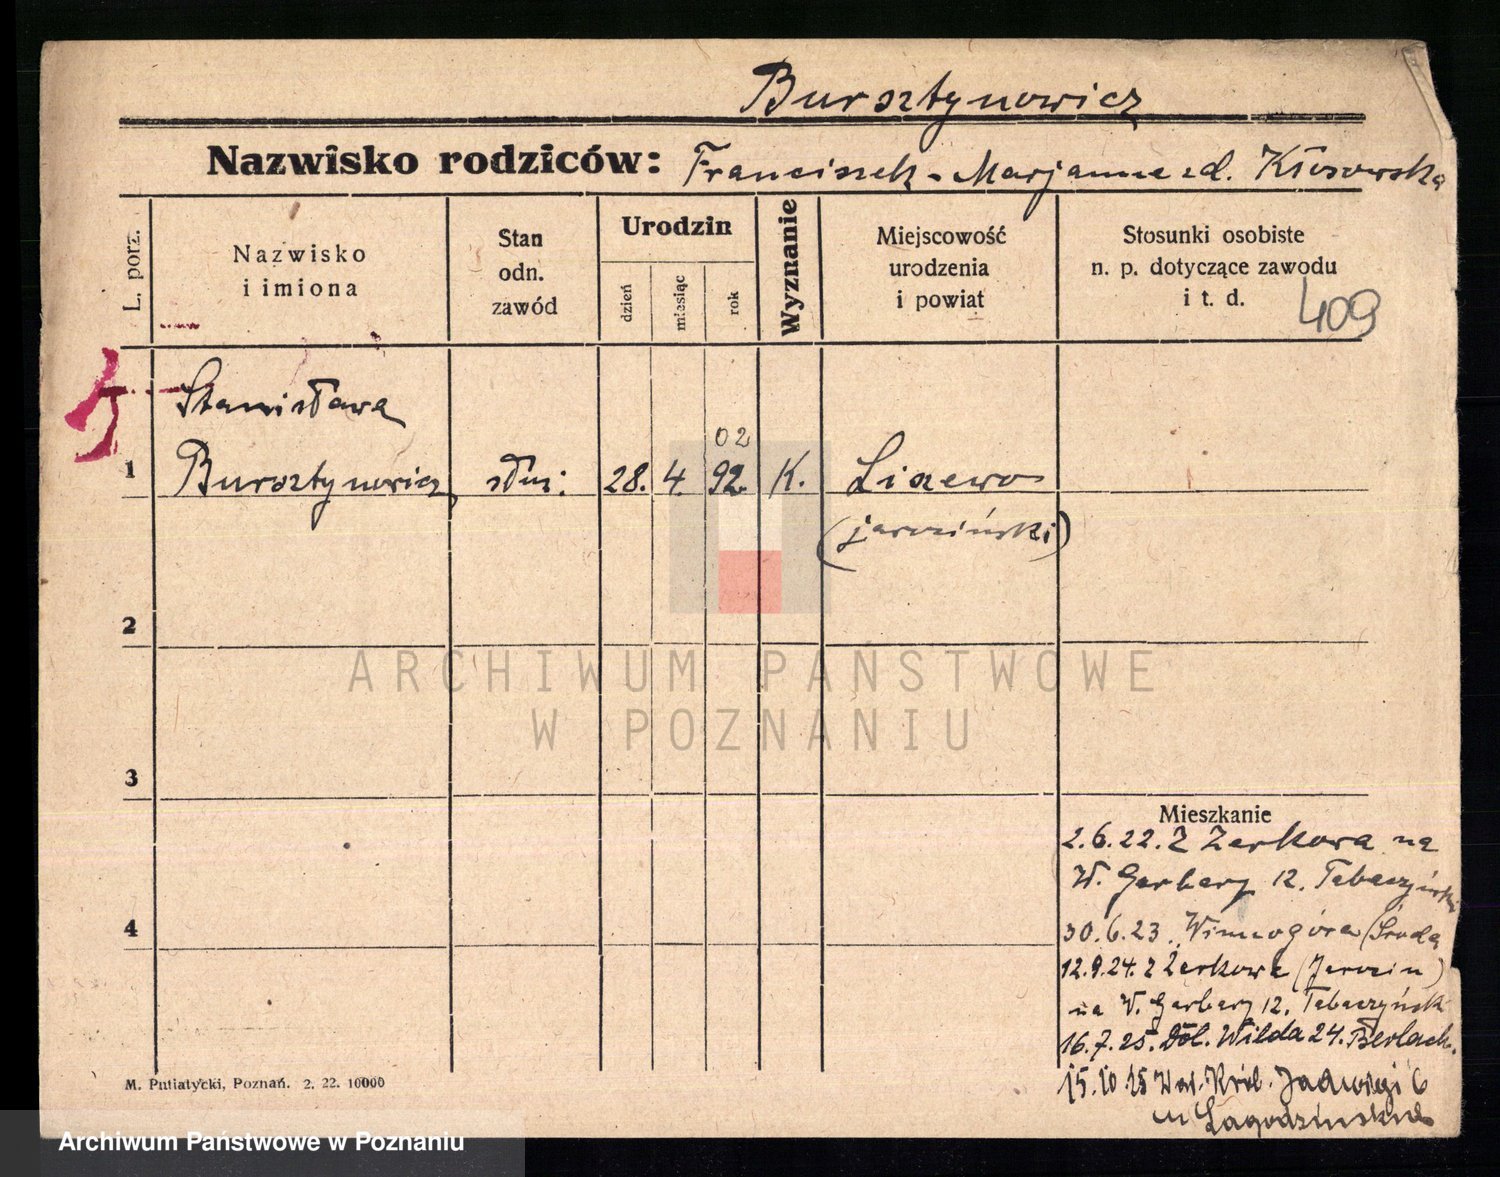 Bursztynowicz
Nazwisko rodziców: Franciszek - Marjanna zd. Kłosowska
L. porz.
Nazwisko
i imiona
Stan
odn.
zawód
Urodzin
dzień
miesiąc
rok
Wyznanie
Miejscowość
urodzenia
i powiat
Stosunki osobiste
n. p. dotyczące zawodu
i t. d.
409
Stanisława
02
1 Bursztynowicz służ: 28. 4. 92. K. Lisewo
(jarociński)
2
3
4
Mieszkanie
2.6.22. Z Żerkowa na
W. Garbary 12. Tabaczyński
30.6.23. Winnogóra (Środa
12.9.24. z Żerkowa (Jarocin)
na W. Garbary 12. Tabaczyński
16.7.25. Dol. Wilda 24. Berlach.
15.10 25 Wał. Król. Jadwigi 6
u Łagodzińskich
M. Putiatycki, Poznań. 2. 22. 10000
ARCHIWUM PAŃSTWOWE
W POZNANIU
Archiwum Państwowe w Poznaniu